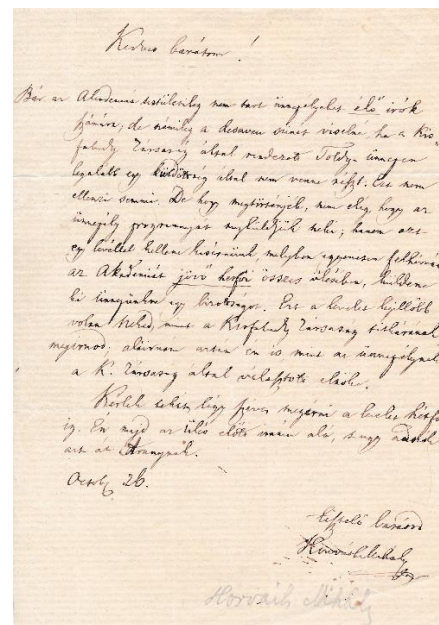 Kedves barátom!
Bár az Akadémia testületileg nem tart ünnepélyeket élő irók
számára; de némileg a desaveu színét viselné, ha a Kis-
faludy Társaság által rendezett Toldy-ünnepen
legalább egy küldöttség által nem venne részt. Ezt nem
ellenzi semmi. De hogy megtörténjék, nem elég, hogy az
ünnepély programmját megküldjük neki; hanem azt
egy levéllel kellene kisérnünk, melyben egyenesen felhívnók
az Akadémiát jövő hétfői összes ülésében, küldene
ki ünnepünkre egy bizottságot. Ezt a levelet legillőbb
volna Neked, mint a Kisfaludy Társaság titkárának
megirnod. aláirnám aztán én is mint az ünnepélynek
a K. Társaság által választott elnöke.
Kérlek tehát, légy szíves megirni a levelet hétfő-
ig. Én majd az ülés előtt irnám alá, s úgy adnók
azt át Aranynak.
Octob. 26.
tisztelő barátod
Horváth Mihály
Horváth Mihály